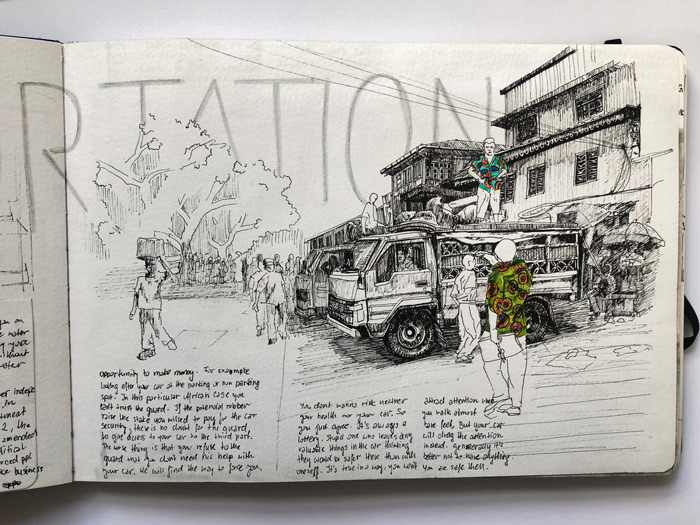 RTATION
opportunity to make money. For example
looking after your car at the parking or non parking
spot. In this particular African case you
can't trust the guard. If the potencial robber
raise the stake you willed to pay for the car
security, there is no doubt for the guard,
to give access to your car to the third part.
The worse thing is that you refuse to the
guard that you don't need his help with
your car. He will find the way to force you.
You don't wanna risk neither
your health nor your car. So
you just agree. It's always a
lottery. Stupid one who leaves any
valuable things in the car thinking
they would be safer there than with
oneself. It's true in a way, you won't
attract attention when
you walk almost
bare feet, but your car
will drag the attention
indeed. Generally it's
better not to have anything.
You are safe then.